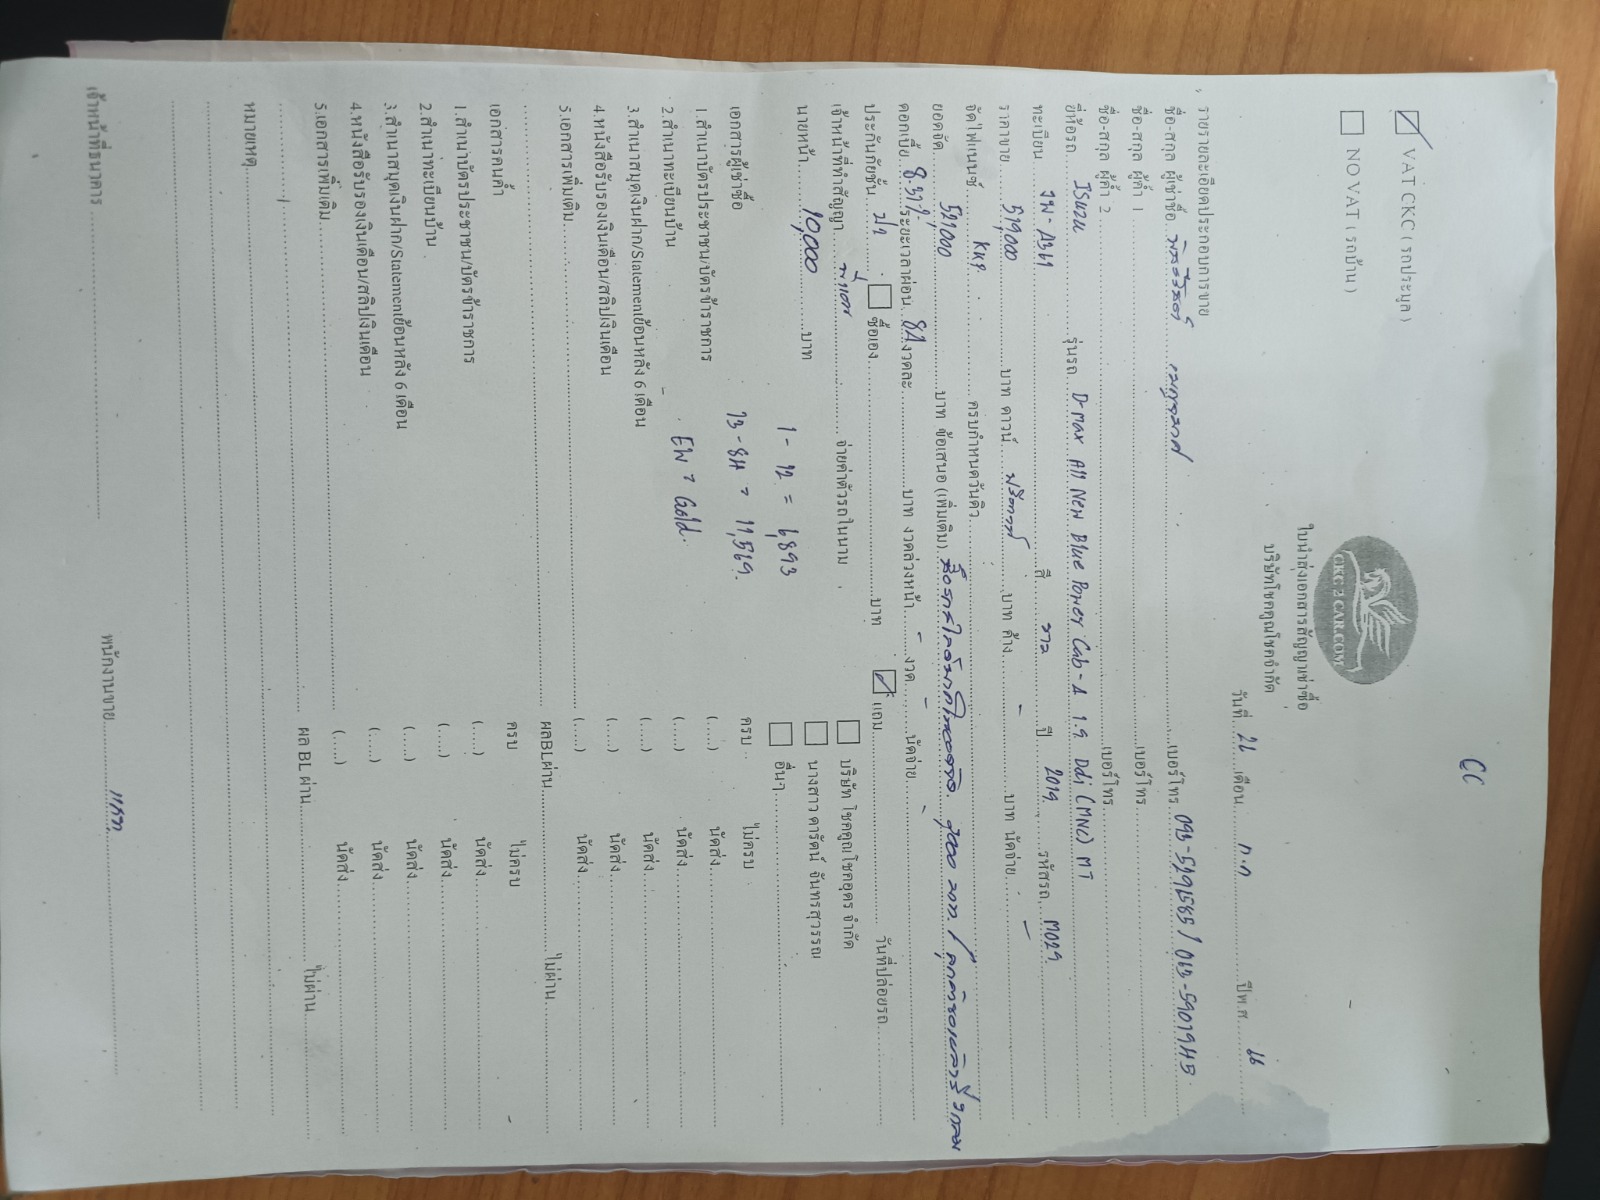 CC
☑ VAT CKC ( รถประมูล )
☐ NO VAT ( รถบ้าน )
CKC 2 CAR.COM
ใบนำส่งเอกสารสัญญาเช่าซื้อ
บริษัทโชคคูณโชคจำกัด
วันที่ 26 เดือน ก.ค ปีพ.ศ. 66
รายรายละเอียดประกอบการขาย
ชื่อ-สกุล ผู้เช่าซื้อ เบอร์โทร
ชื่อ-สกุล ผู้ค้ำ 1 เบอร์โทร
ชื่อ-สกุล ผู้ค้ำ 2 เบอร์โทร
ยี่ห้อรถ ISUZU รุ่นรถ D-max All New Blue Power Cab-4 1.9 Ddi (MNC) MT
ทะเบียน สี ขาว ปี 2019 รหัสรถ M029
ราคาขาย 519,000 บาท ดาวน์ ฟรีดาวน์ บาท ค้าง - บาท นัดจ่าย -
จัดไฟแนนซ์ KKP ครบกำหนดวันคิว
ยอดจัด 519,000 บาท ข้อเสนอ (เพิ่มเติม)
ดอกเบี้ย ระยะเวลาผ่อน 84 งวดละ บาท งวดล่วงหน้า - งวด - นัดจ่าย -
ประกันภัยชั้น ☐ ซื้อเอง บาท ☑ แถม วันที่ปล่อยรถ
เจ้าหน้าที่ทำสัญญา จ่ายค่าตัวรถในนาม ☐ บริษัท โชคคูณโชคอุดร จำกัด
☐ นางสาว ดารัตน์ จันทรสุวรรณ
นายหน้า 10,000 บาท ☐ อื่นๆ
1 - 12 = 6,893
13 - 84 = 11,569.
EW = Gold.
เอกสารผู้เช่าซื้อ ครบ ไม่ครบ
1.สำเนาบัตรประชาชน/บัตรข้าราชการ (....) นัดส่ง
2.สำเนาทะเบียนบ้าน (....) นัดส่ง
3.สำเนาสมุดเงินฝาก/Statementย้อนหลัง 6 เดือน (....) นัดส่ง
4.หนังสือรับรองเงินเดือน/สลิปเงินเดือน (....) นัดส่ง
5.เอกสารเพิ่มเติม (....) นัดส่ง
ผลBLผ่าน ไม่ผ่าน
เอกสารคนค้ำ ครบ ไม่ครบ
1.สำเนาบัตรประชาชน/บัตรข้าราชการ (....) นัดส่ง
2.สำเนาทะเบียนบ้าน (....) นัดส่ง
3.สำเนาสมุดเงินฝาก/Statementย้อนหลัง 6 เดือน (....) นัดส่ง
4.หนังสือรับรองเงินเดือน/สลิปเงินเดือน (....) นัดส่ง
5.เอกสารเพิ่มเติม (....) นัดส่ง
ผล BL ผ่าน ไม่ผ่าน
หมายเหตุ
เจ้าหน้าที่ธนาคาร พนักงานขาย